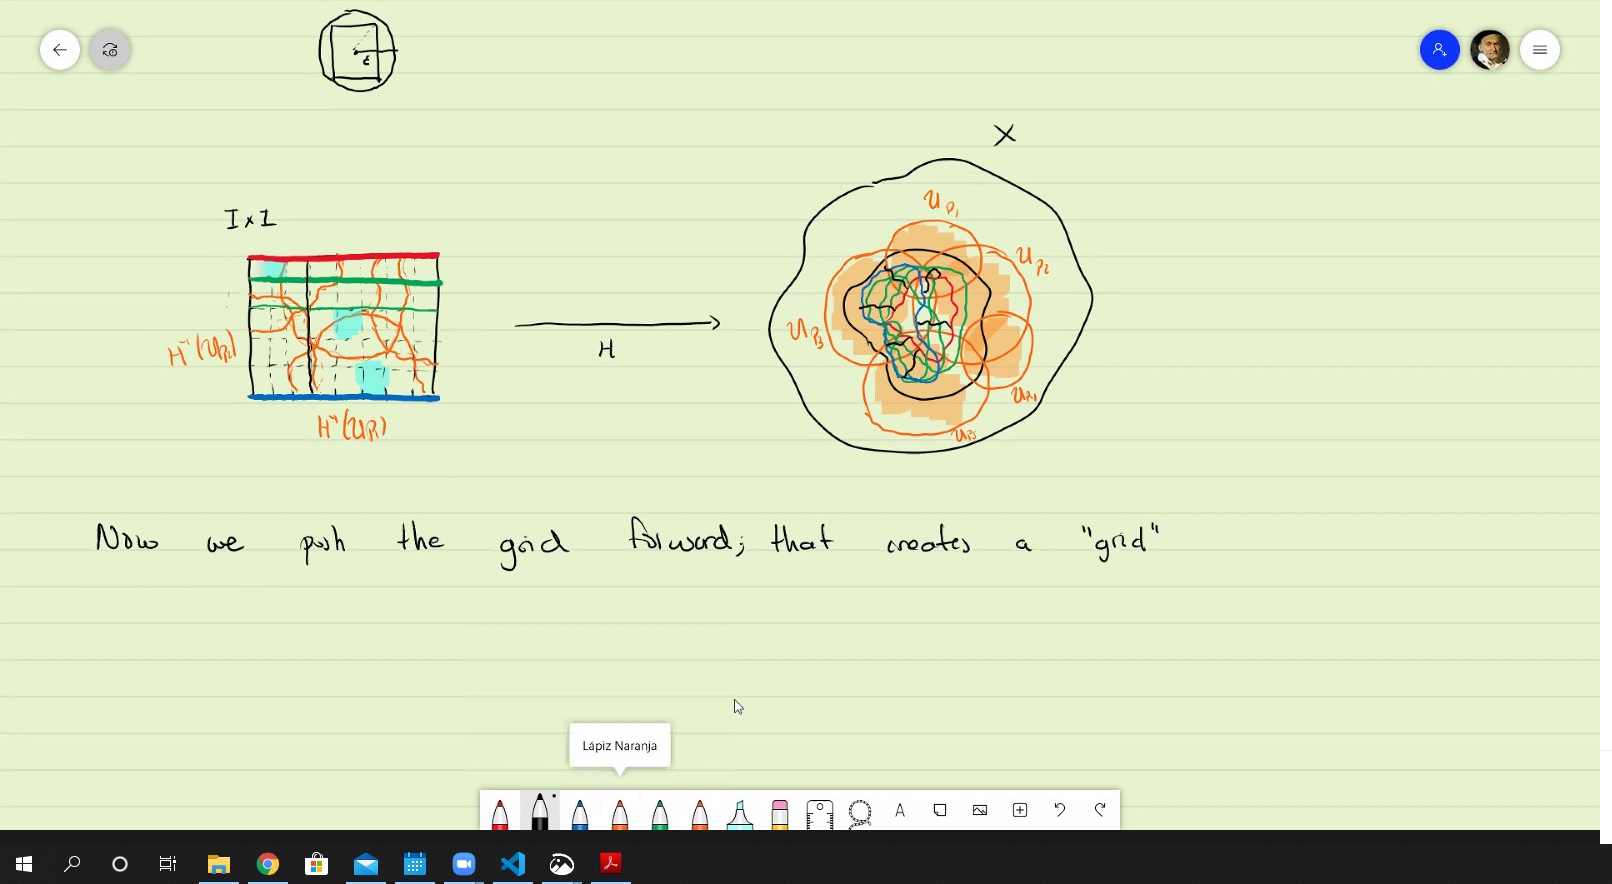 ε
X
U_{P_1}
I × I
U_{P_2}
U_{P_3}
H^{-1}(U_{P_2})
H
H^{-1}(U_{P_1})
U_{P_4}
U_{P_5}
Now we push the grid forward; that creates a "grid"
Lápiz Naranja
A